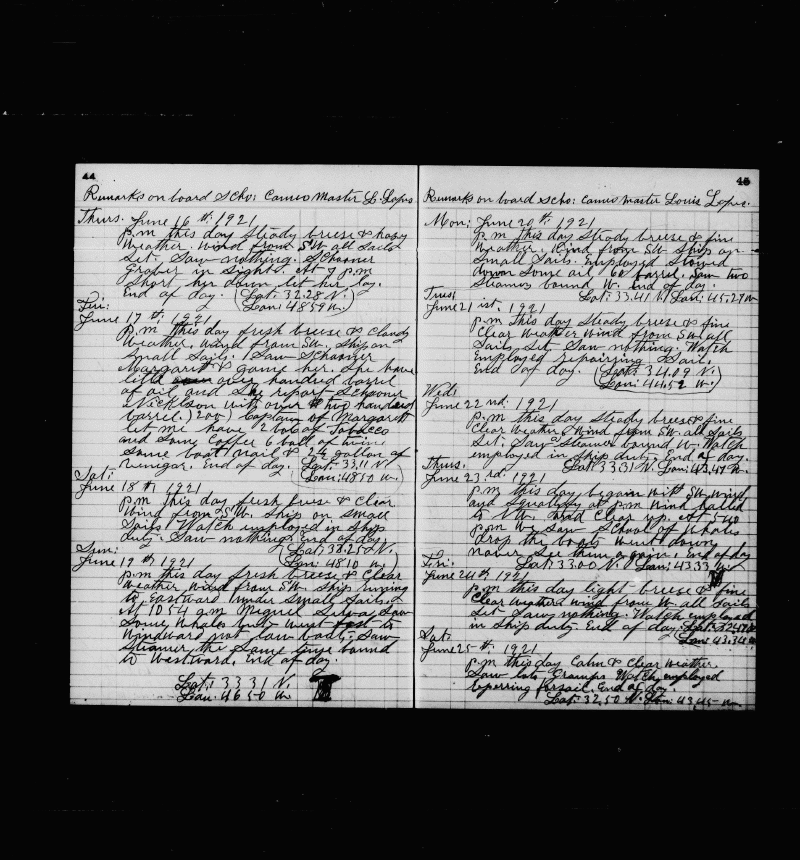 44
Remarks on board Scho: Cameo Master L. Lopes
Thurs. June 16 th. 1921
p.m. this day Steady breeze & hazy
Weather. Wind from SW all Sails
Set. Saw nothing. Schooner
in Sight. At 7 p.m
Short her down let her lay.
End of day. (Lat: 32.28 N.)
Lon: 48.59 W.
Fri:
June 17 th. 1921
p.m. this day fresh breeze & Cloudy
Weather. Wind from SW. Ship on
Small Sails. Saw Schooner
Margarett & game her. She have
over hundred barrel
of oil and She report Schooner
with over two hundred
barrel. (200) Captain of Margarett
let me have 2 box of Tobacco
and Some Coffee 6 ball of twine
Some boat nail & 2½ gallon of
vinegar. End of day. Lat: 33.11 N.
Lon: 48.10 W.
Sat:
June 18 th. 1921
p.m this day fresh breese & Clear
Wind from SW. Ship on Small
Sails. Watch employed in Ship
duty. Saw nothing. End of day
Sun: (Lat: 33.25 N.
June 19 th 1921 Lon: 48.10 W.)
p.m this day fresh breese & Clear
Weather Wind from SW. Ship runing
to Eastward Under Small Sails.
At 10.54 a.m Miguel Silva Saw
Some Whales but went fast to
Windward not low boats. Saw
Steamer the Same time bound
to Westward. End of day.
Lat: 33 31 N.
Lon: 46 50 W.
45
Remarks on board Scho: Cameo master Louis Lopes.
Mon: June 20 th. 1921
p.m this day Steady breese & fine
Weather. Wind from SW Ship on
Small Sails. Employed Stowed
down Some oil 60 barrel. Saw two
Steamers bound W. End of day.
Lat: 33.41 N. Lon: 45.27 W
Tues:
June 21 ist. 1921
p.m this day Steady breese & fine
Clear Weather Wind from SW. all
Sails Set. Saw nothing. Watch
Employed repairring Sail.
End of day. (Lat: 34.09 N.)
Lon: 44.52 W.
Wed:
June 22 nd. 1921
p.m. this day Steady breese & fine
Clear Weather Wind from SW. all Sails
Set. Saw Steamer bound W. Watch
employed in Ship duty. End of day.
Thurs. Lat: 33.31 N. Lon: 43.47 W.
June 23 rd. 1921
p.m this day begain with SW. wind
and Squally at p.m wind halled
to W. and Clear up. At 5.40
p.m We Saw School of Whales
drop the boats Went down
naver See them again. End of day
Fri: Lat: 33.00 N. Lon: 43.33 W.
June 24 th 1921
p.m this day light breese & fine
Clear Weather wind from W. all Sails
Set. Saw nothing. Watch employed
in Ship duty. End of day. Lat: 32.57 N
Lon: 43.34 W
Sat:
June 25 th. 1921
p.m. this day Calm & Clear weather
Saw lots Gramps. Watch employed
forsail. End of day.
Lat: 32.50 N. Lon: 43.45 W